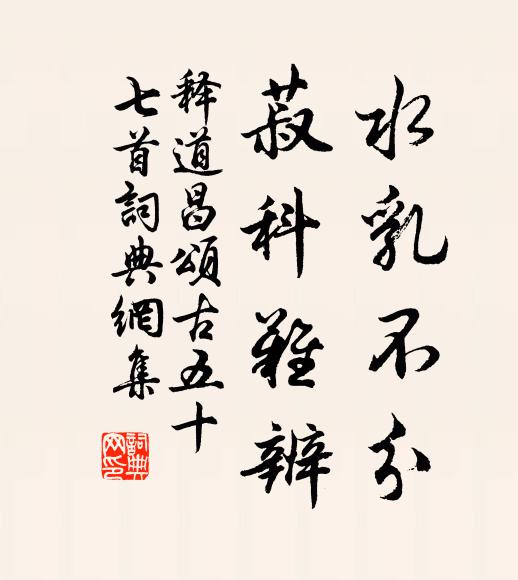 水乳不分
菽科难辨
释道昌颂古五十
七首詞典網集
詞典網印